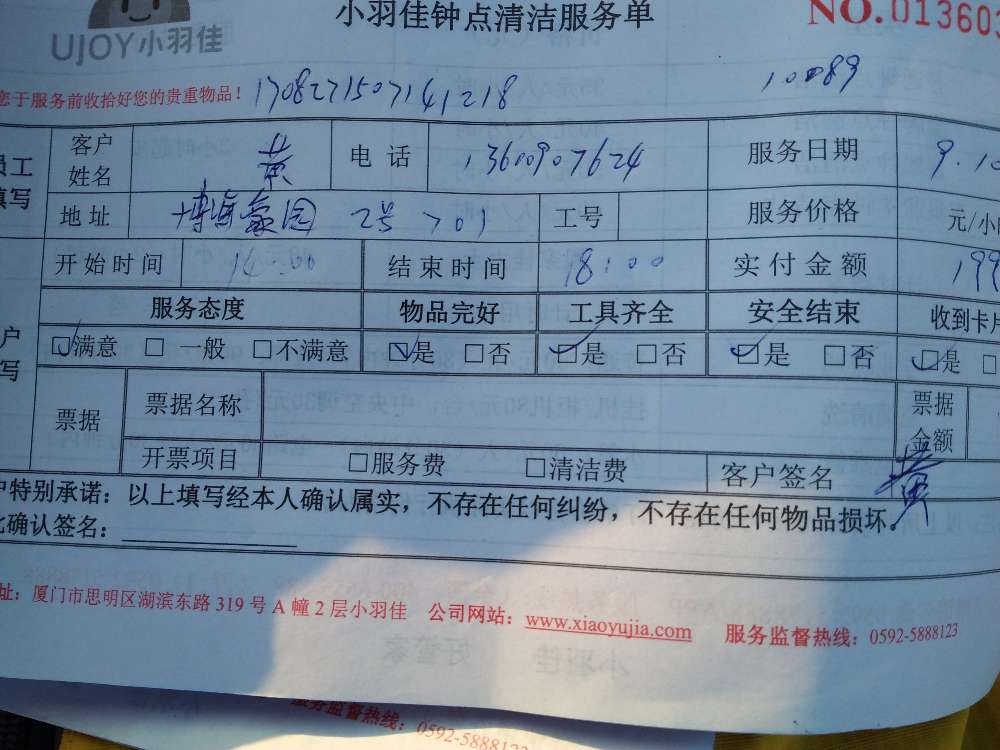 小羽佳钟点清洁服务单
NO.013603
UJOY小羽佳
您于服务前收拾好您的贵重物品！ 1708271507141218 10089
员工填写 客户姓名 黄 电话 13600907624 服务日期 9.10
地址 博海豪园 2号 701 工号 服务价格 元/小
开始时间 14:00 结束时间 18:00 实付金额 199
服务态度 物品完好 工具齐全 安全结束 收到卡片
户写 ☑满意 □ 一般 □不满意 ☑是 □否 ☑是 □否 ☑是 □否 ☑是 □
票据 票据名称 票据金额
开票项目 □服务费 □清洁费 客户签名 黄
户特别承诺：以上填写经本人确认属实，不存在任何纠纷，不存在任何物品损坏。
此确认签名：
址：厦门市思明区湖滨东路 319 号 A 幢 2 层小羽佳 公司网站：www.xiaoyujia.com 服务监督热线：0592-5888123
服务监督热线：0592-5888123